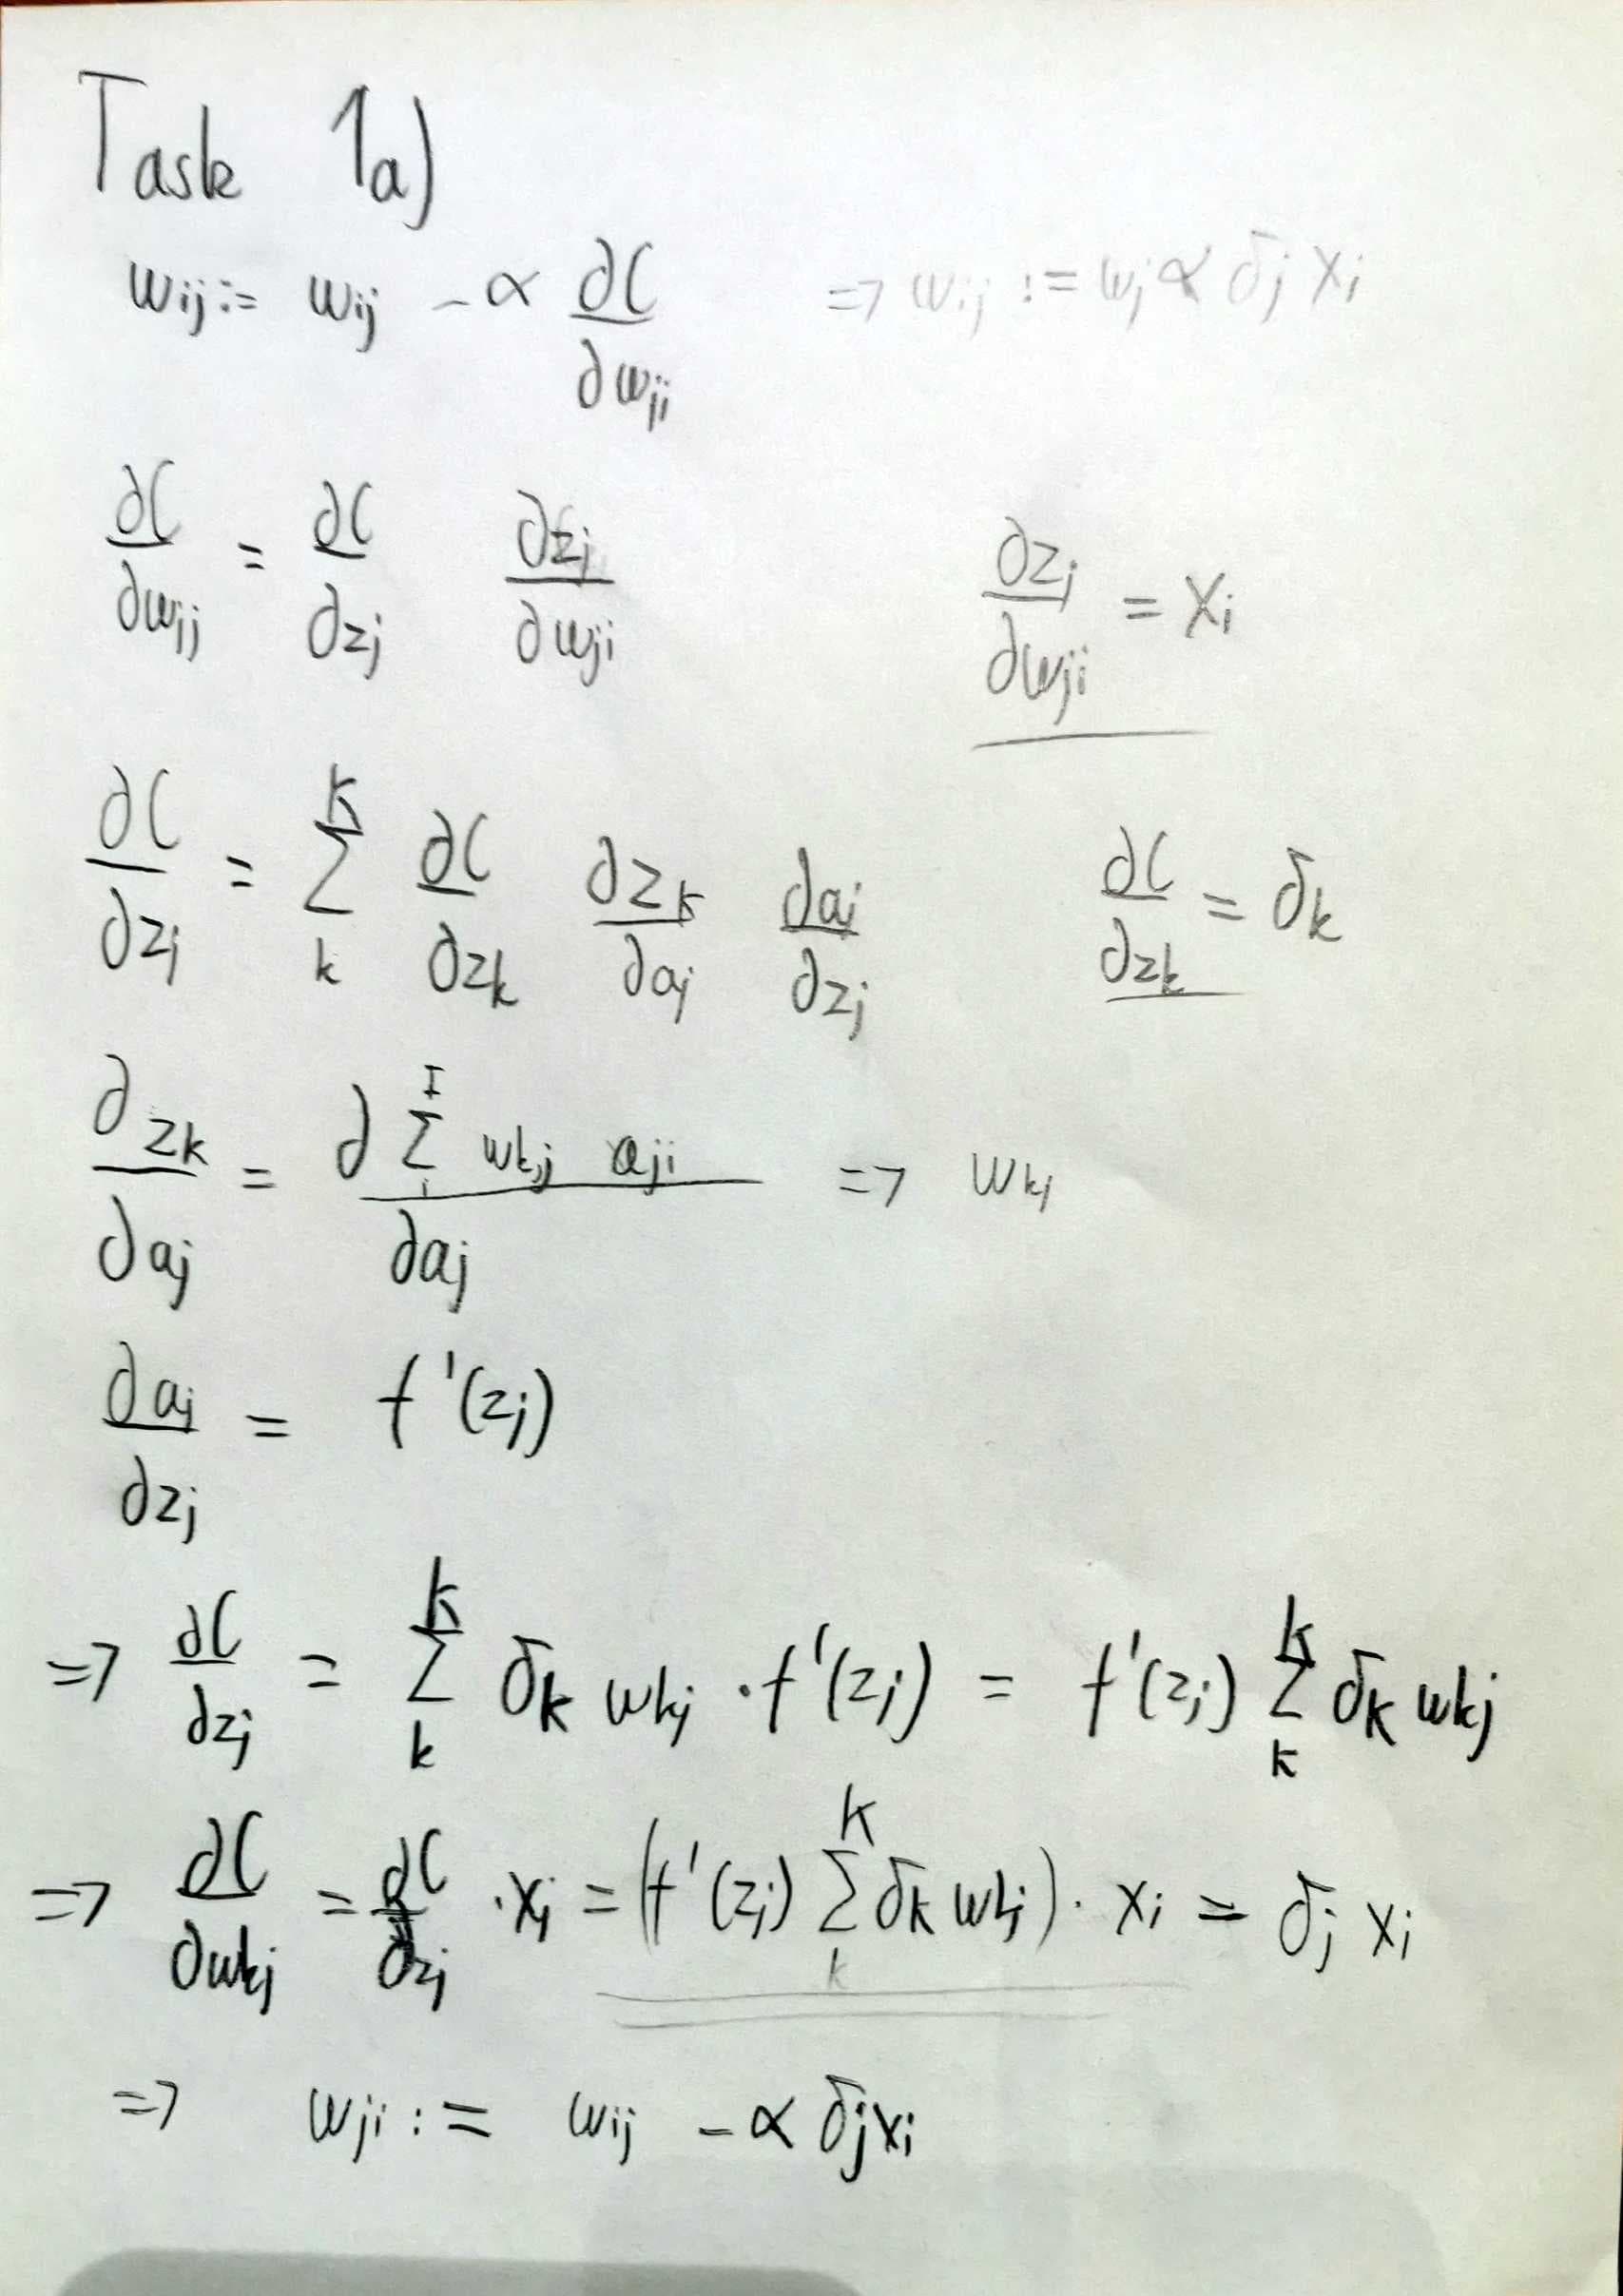 Task 1a)
w_ij := w_ij - α ∂C/∂w_ji => w_ij := w_j α δ_j x_i
∂C/∂w_ij = ∂C/∂z_j ∂z_j/∂w_ji    ∂z_j/∂w_ji = x_i
∂C/∂z_j = Σ_k^K ∂C/∂z_k ∂z_k/∂a_j ∂a_j/∂z_j    ∂C/∂z_k = δ_k
∂z_k/∂a_j = ∂ Σ_i^I w_kj a_ji / ∂a_j => w_kj
∂a_j/∂z_j = f'(z_j)
=> ∂C/∂z_j = Σ_k^K δ_k w_kj · f'(z_j) = f'(z_j) Σ_k^K δ_k w_kj
=> ∂C/∂w_kj = ∂C/∂z_j · x_i = (f'(z_j) Σ_k^K δ_k w_kj) · x_i = δ_j x_i
=> w_ji := w_ij - α δ_j x_i